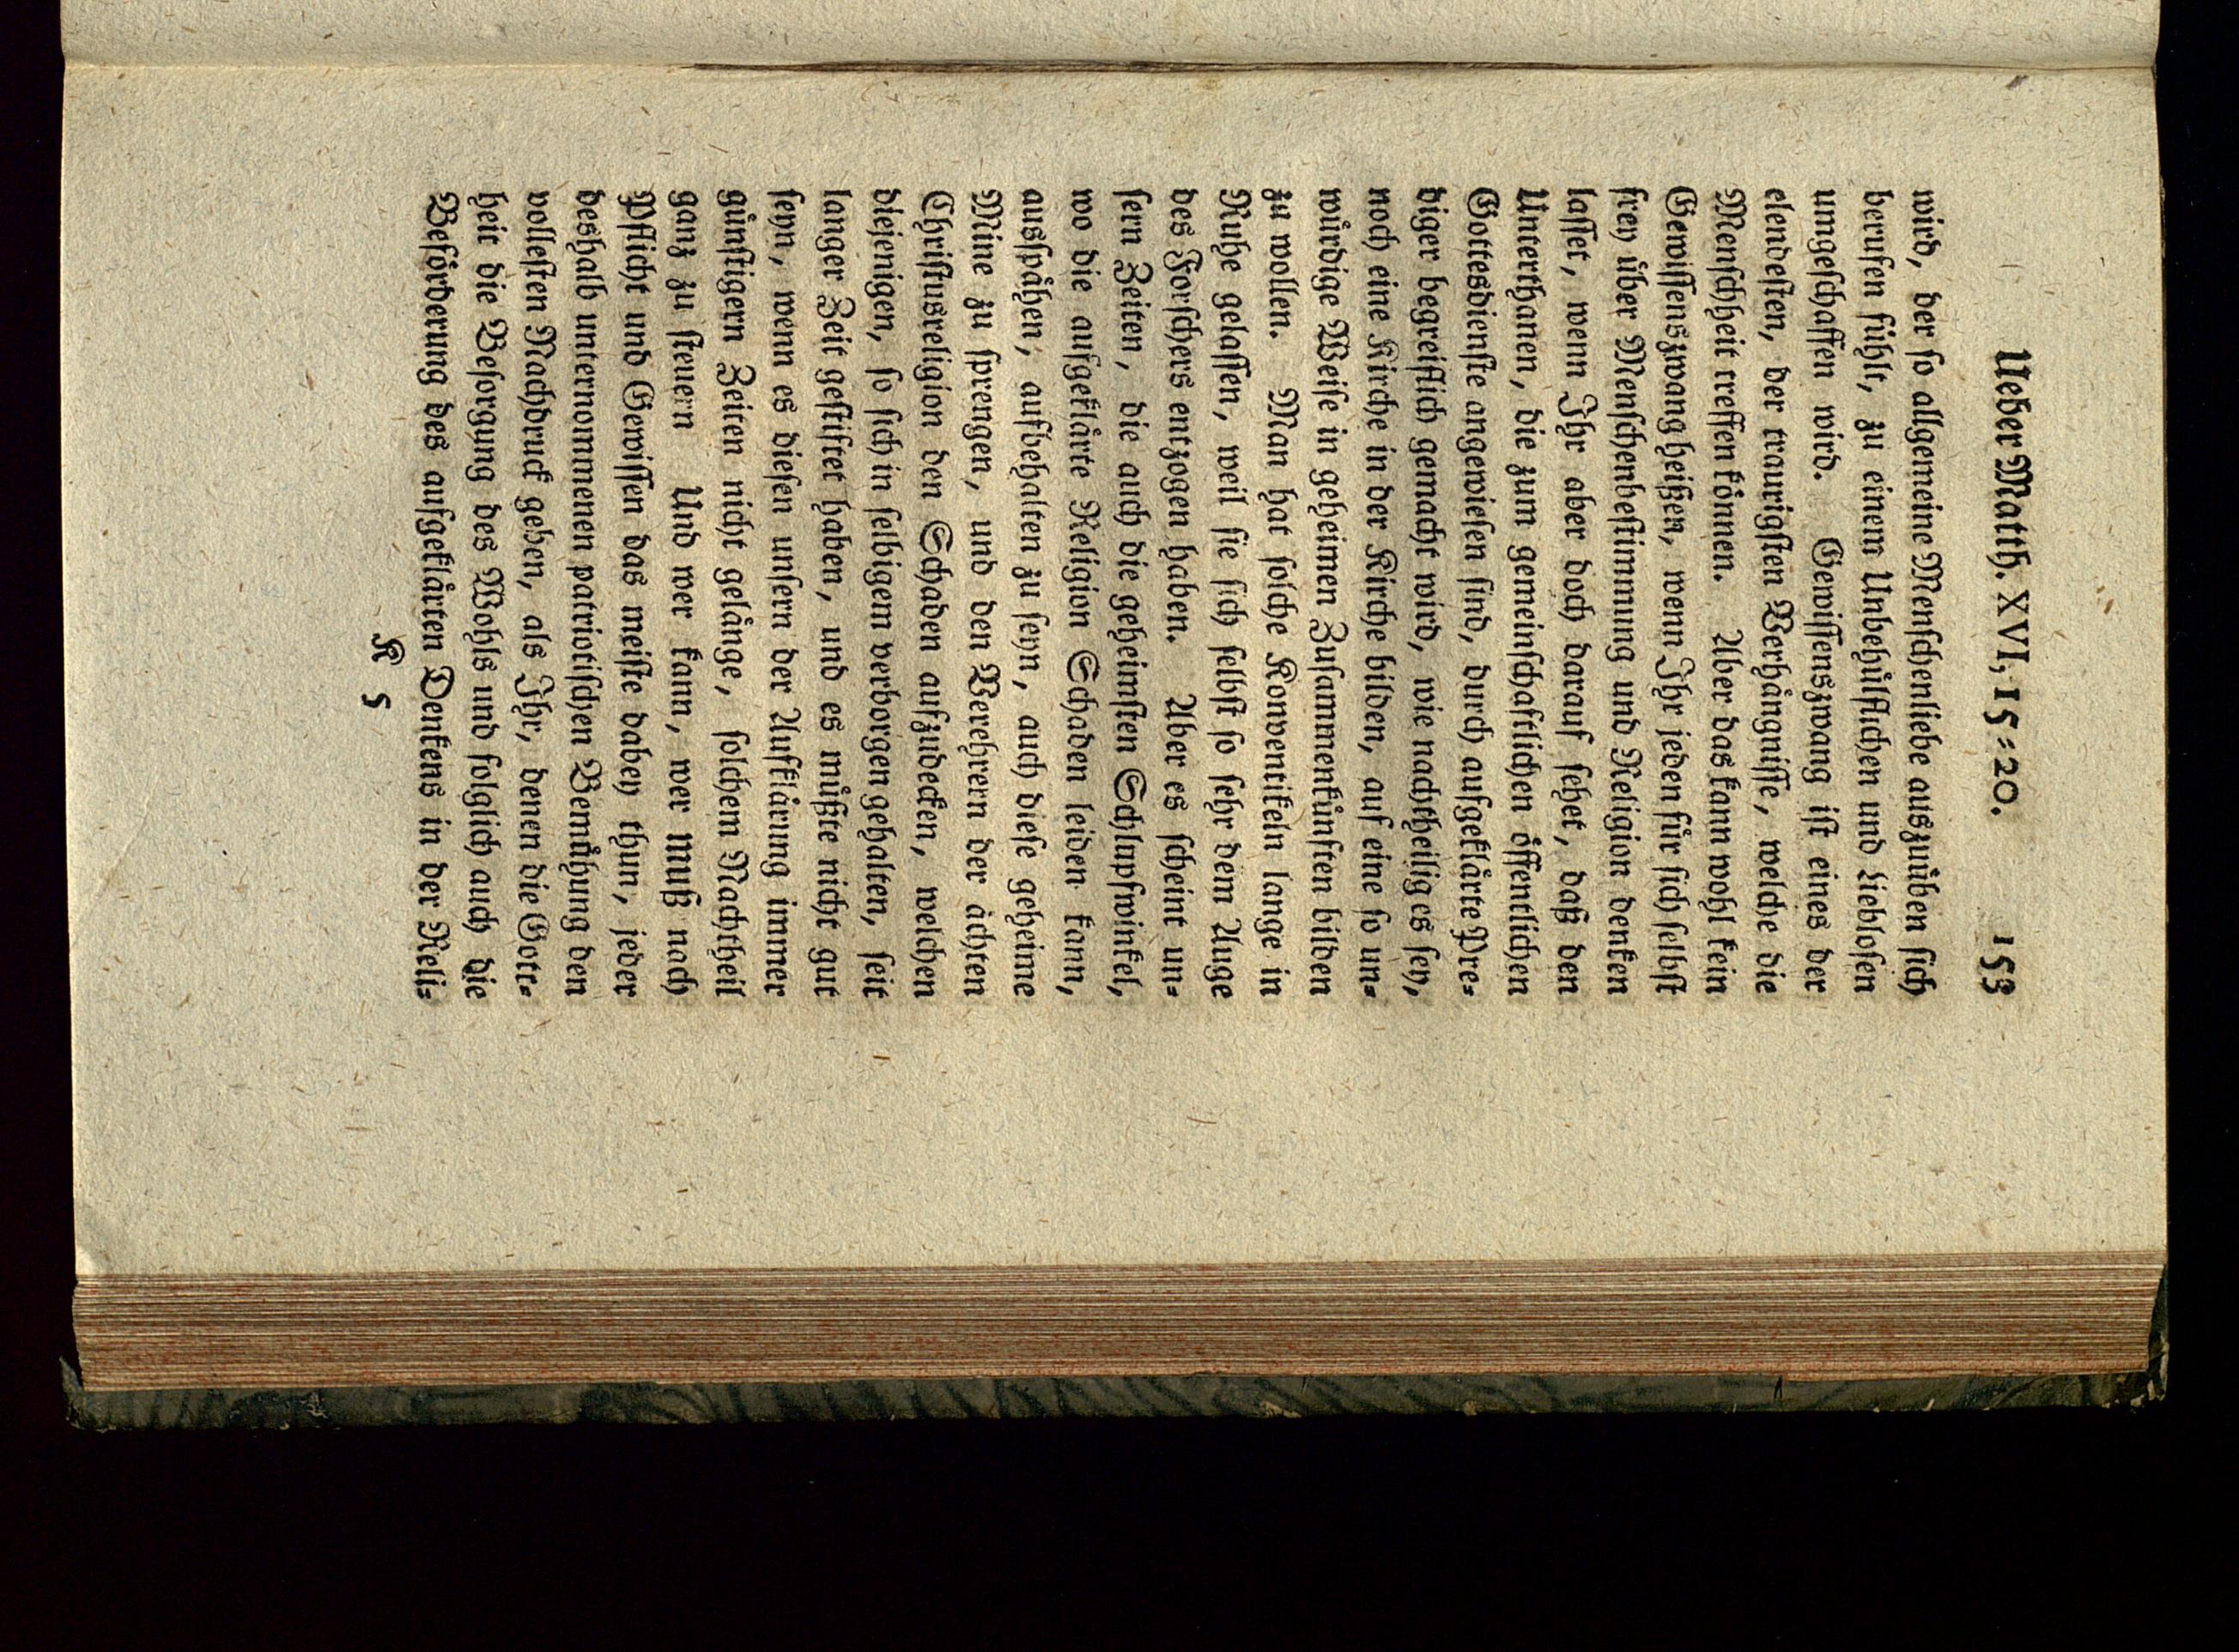 Ueber Matth. XVI, 15⸗20. 153
wird, der ſo allgemeine Menſchenliebe auszuüben ſich
berufen fühlt, zu einem Unbehülflichen und Liebloſen
umgeſchaffen wird. Gewiſſenszwang iſt eines der
elendeſten, der traurigſten Verhängniſſe, welche die
Menſchheit treffen können. Aber das kann wohl kein
Gewiſſenszwang heißen, wenn Ihr jeden für ſich ſelbſt
frey über Menſchenbeſtimmung und Religion denken
laſſet, wenn Ihr aber doch darauf ſehet, daß den
Unterthanen, die zum gemeinſchaftlichen öffentlichen
Gottesdienſte angewieſen ſind, durch aufgeklärte Pre⸗
diger begreiflich gemacht wird, wie nachtheilig es ſey,
noch eine Kirche in der Kirche bilden, auf eine ſo un⸗
würdige Weiſe in geheimen Zuſammenkünften bilden
zu wollen. Man hat ſolche Konventikeln lange in
Ruhe gelaſſen, weil ſie ſich ſelbſt ſo ſehr dem Auge
des Forſchers entzogen haben. Aber es ſcheint un⸗
ſern Zeiten, die auch die geheimſten Schlupfwinkel,
wo die aufgeklärte Religion Schaden leiden kann,
ausſpähen, aufbehalten zu ſeyn, auch dieſe geheime
Mine zu ſprengen, und den Verehrern der ächten
Chriſtusreligion den Schaden aufzudecken, welchen
diejenigen, ſo ſich in ſelbigem verborgen gehalten, ſeit
langer Zeit geſtiftet haben, und es müßte nicht gut
ſeyn, wenn es dieſen unſern der Aufklärung immer
günſtigern Zeiten nicht gelänge, ſolchem Nachtheil
ganz zu ſteuern Und wer kann, wer muß nach
Pflicht und Gewiſſen das meiſte dabey thun, jeder
deshalb unternommenen patriotiſchen Bemühung den
volleſten Nachdruck geben, als Ihr, denen die Gott⸗
heit die Beſorgung des Wohls und folglich auch die
Beförderung des aufgeklärten Denkens in der Reli⸗
K 5